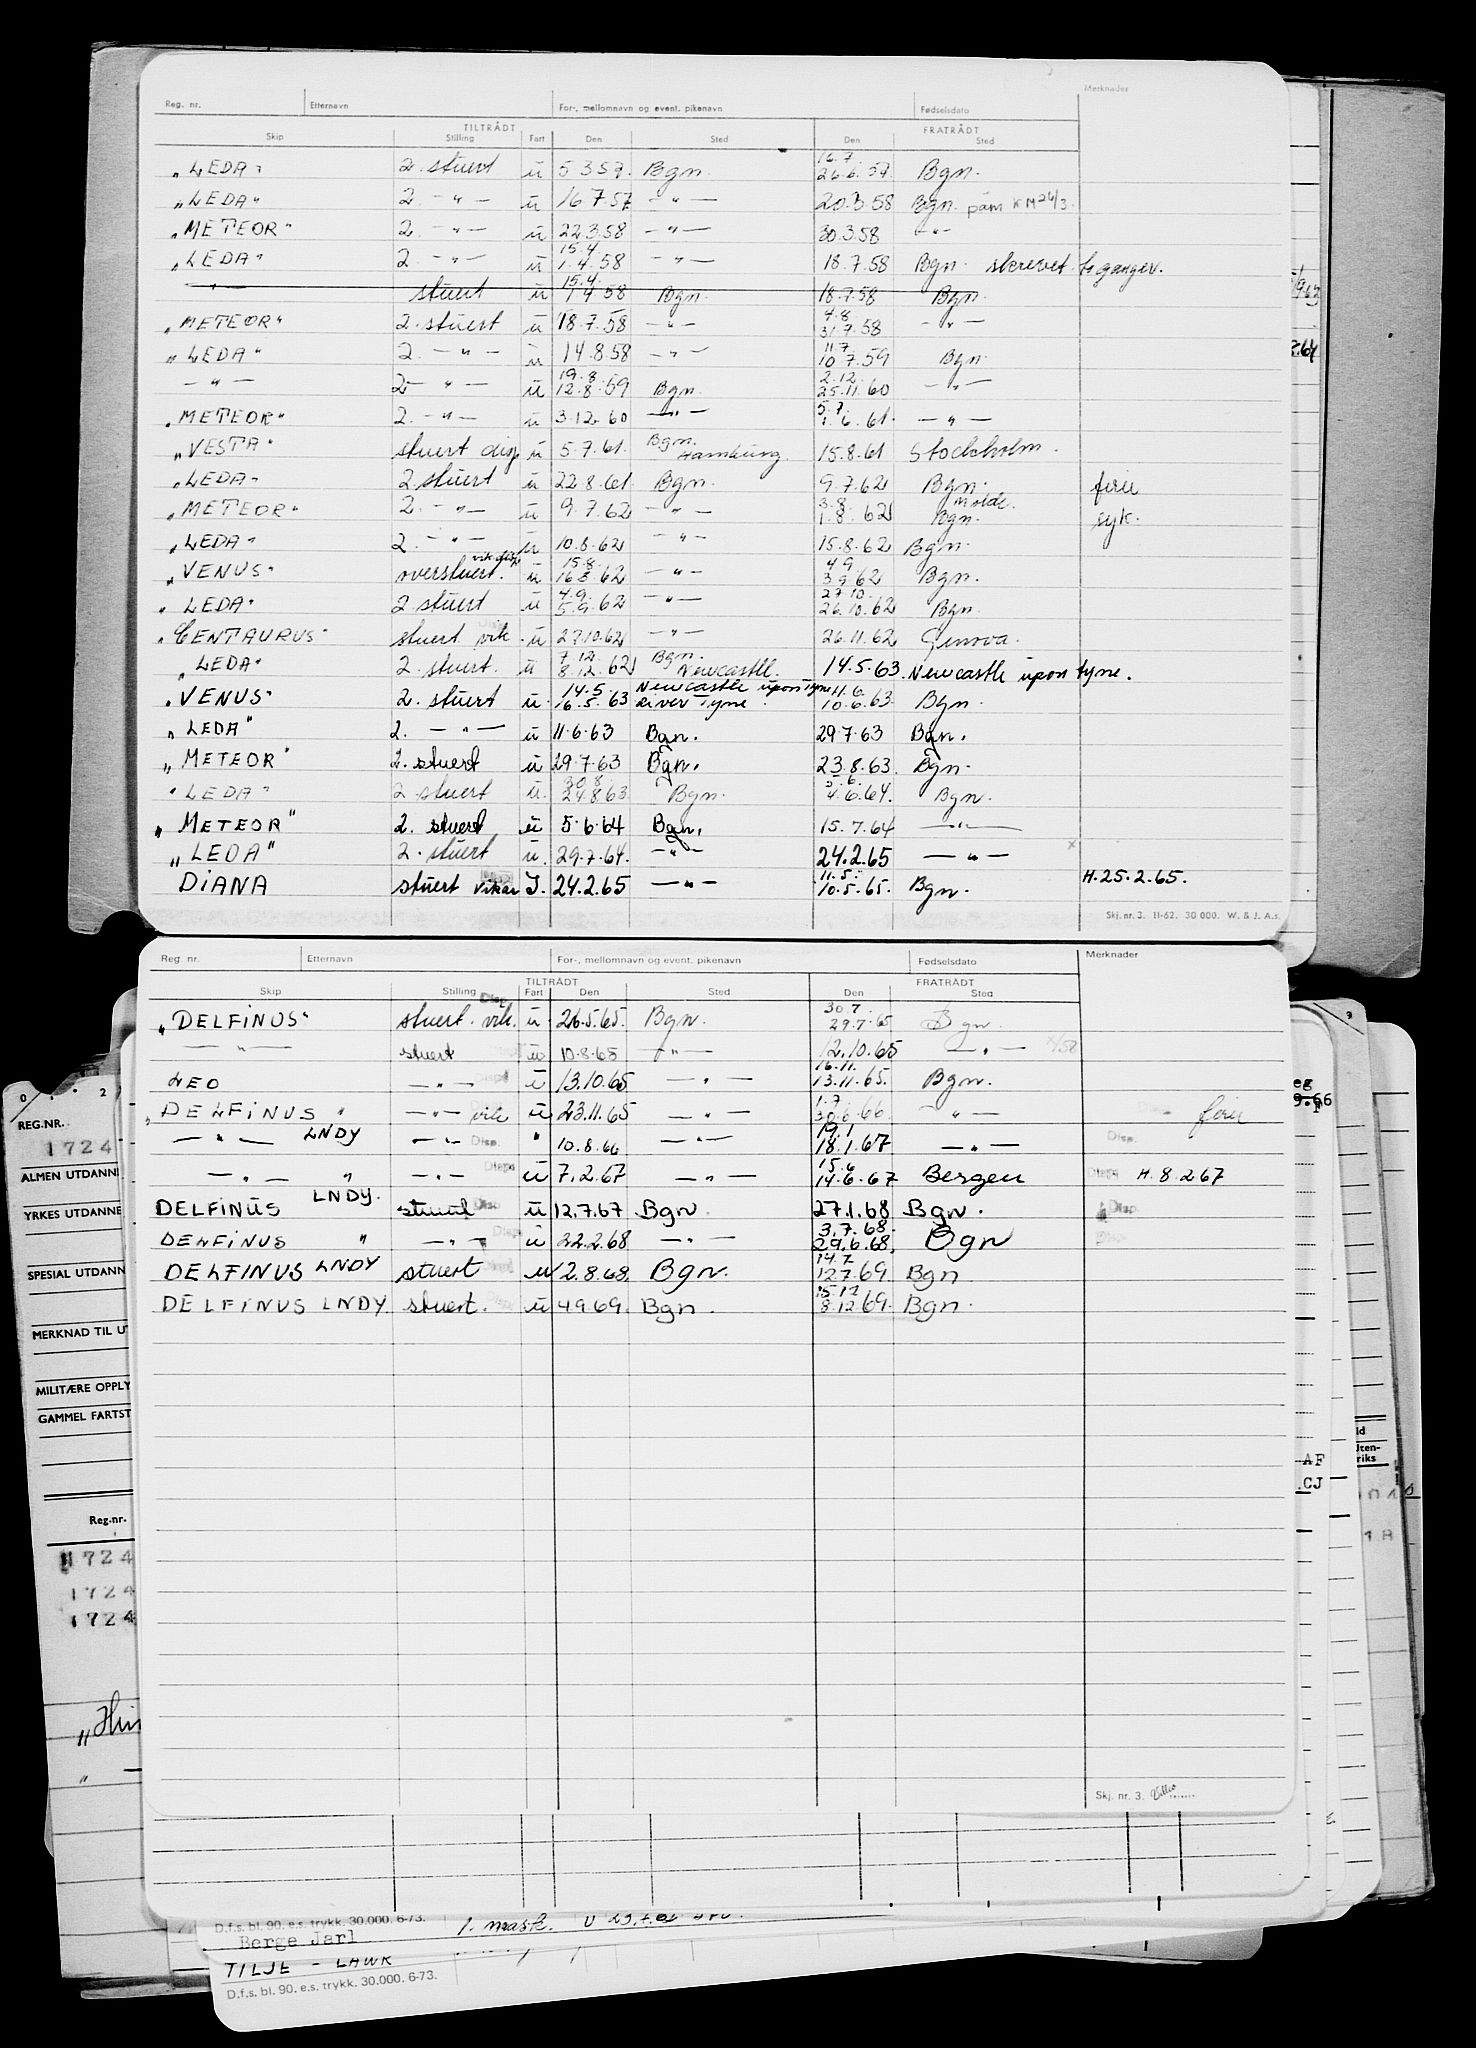 Merknader
Reg. nr. Etternavn For-, mellomnavn og event. pikenavn Fødselsdato
TILTRÅDT FRATRÅDT
Skip Stilling Fart Den Sted Den Sted
„LEDA" 2. stuert u 5.3.57. Bgn. 16.7 26.6.57 Bgn.
„LEDA" 2. — " — u 16.7.57 — " — 20.3.58 Bgn. påm KM 26/3.
„METEOR" 2. — " — u 22.3.58 — " — 30.3.58 — " —
„LEDA" 2. — " — u 15.4 1.4.58 — " — 18.7.58 Bgn. skrevet to ganger.
— " — stuert u 15.4. 1.4.58 Bgn. 18.7.58 Bgn.
„METEOR" 2. stuert u 18.7.58 — " — 4.8. 31.7.58 — " —
„LEDA" 2. — " — u 14.8.58 — " — 11.7. 10.7.59 Bgn.
— " — 2 — " — u 19.8. 12.8.59 Bgn. 2.12. 25.11.60 — " —
„METEOR" 2. — " — u 3.12.60 — " — 5.7. 1.6.61. — " —
„VESTA" stuert disp u 5.7.61. Bgn. Hamburg. 15.8.61 Stockholm.
„LEDA" 2. stuert u 22.8.61. Bgn. 9.7.62 Bgn. ferie
„METEOR" 2. — " — u 9.7.62 — " — 3.8. 1.8.62 Molde. Bgn. syk.
„LEDA" 2. — " — u 10.8.62 — " — 15.8.62 Bgn.
„VENUS" overstuert. vik. disp u 15.8. 16.8.62 — " — 4.9 3.9.62 Bgn.
„LEDA" 2 stuert u 4.9. 5.9.62 — " — 27.10. 26.10.62 Bgn.
„CENTAURUS" stuert vik. u 27.10.62 — " — 26.11.62 Genova.
„LEDA" 2. stuert. u 7.12. 8.12.62 Bgn. Newcastle. 14.5.63. Newcastle upon tyne.
„VENUS" 2. stuert u. 14.5 16.5.63 Newcastle upon Tyne River Tyne. 11.6. 10.6.63. Bgn.
„LEDA" 2. — " — u 11.6.63 Bgn. 29.7.63 Bgn.
„METEOR" 2. stuert u 29.7.63 Bgn. 23.8.63. Bgn.
„LEDA" 2 stuert u. 30.8. 24.8.63 Bgn. 5.6. 4.6.64. Bgn.
„METEOR" 2. stuert u 5.6.64 Bgn. 15.7.64 — " —
„LEDA" 2. stuert u. 29.7.64. — " — 24.2.65 — " — x
DIANA stuert vikar I. 24.2.65 — " — 11.5. 10.5.65. Bgn. H.25.2.65.
Skj. nr. 3. 11-62. 30 000. W. & J. A.s.
Reg. nr. Etternavn For-, mellomnavn og event. pikenavn Fødselsdato Merknader
TILTRÅDT FRATRÅDT
Skip Stilling Fart Den Sted Den Sted
„DELFINUS" stuert. vik. Disp. u. 26.5.65. Bgn. 30.7. 29.7.65 Bgn.
— " — stuert u 10.8.65 — " — 12.10.65 — " —
LEO — " — u 13.10.65 — " — 16.11. 13.11.65. Bgn.
„DELFINUS" — " — vik u 23.11.65 — " — 1.7. 30.6.66 — " — ferie
— " — LNDY — " — Disp. " 10.8.66 — " — 19.1 18.1.67 — " — Disp.
— " — " — " — Disp. u 7.2.67 — " — 15.6 14.6.67 Bergen Disp. H.8.2 67
DELFINUS LNDY. stuert Disp. u 12.7.67 Bgn 27.1.68 Bgn. Disp.
DELFINUS " — " — Disp. u 22.2.68 — " — 3.7.68. 29.6.68. Bgn Disp.
DELFINUS LNDY stuert u 2.8.68. Bgn. 14.7 12.7.69 Bgn
DELFINUS LNDY. stuert. u 4.9.69. Bgn. 15.12 8.12.69. Bgn.
Skj. nr. 3.
REG.NR.
1724
ALMEN UTDANN
YRKES UTDANNE
SPESIAL UTDANN
MERKNAD TIL U
MILITÆRE OPPLY
GAMMEL FARTST
Reg.-nr.
1724
1724
1724
AF
CJ
D.f.s. bl. 90. e.s. trykk. 30.000. 6-73.
Berge Jarl 1. mask. U
TILJE - LAWR
D.f.s. bl. 90. e.s. trykk. 30.000. 6-73.